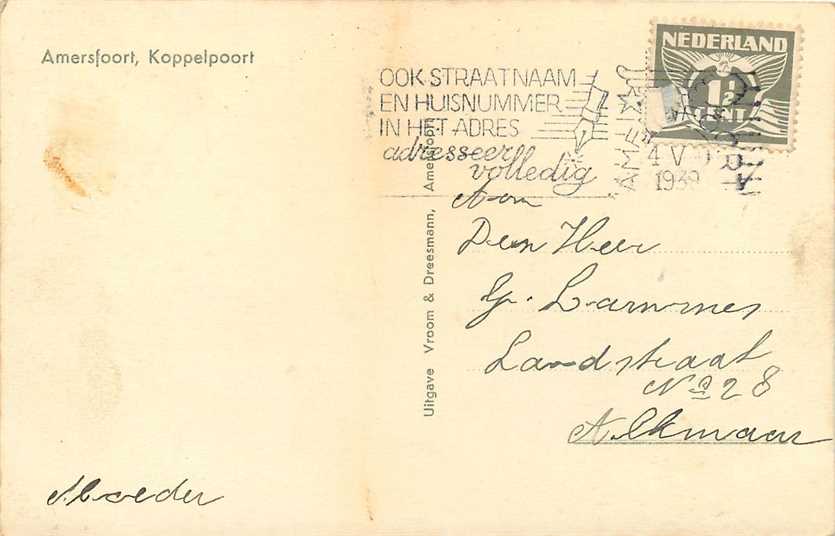 Amersfoort, Koppelpoort
OOK STRAATNAAM
EN HUISNUMMER
IN HET ADRES
adresseer
volledig
4 V
1939
NEDERLAND
1½
CENT
Uitgave Vroom & Dreesmann, Amersfoort
Aan
Den Heer
G. Lammes
Landstraat
No 28
Alkmaar
Moeder